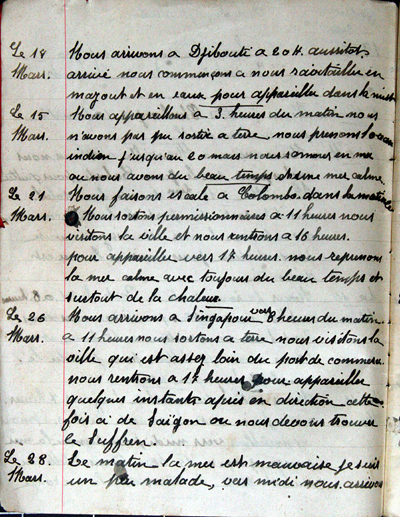 Le 18 Nous arrivons a Djibouti a 20 H. aussitot
Mars. arrivé nous commençons a nous ravitailler en
mazout et en eaux pour appareiller dans la nuit
Le 15 Nous appareillons a 3 heures du matin nous
Mars. n'avons pas pu sortir a terre nous prenons l'ocean
indien jusqu'au 20 mars nous sommes en mer
ou nous avons du beau temps et une mer calme.
Le 21 Nous faisons escale a Colombo. dans la matinée
Mars. Nous sortons permissionnaires a 11 heures nous
visitons la ville et nous rentrons a 16 heures.
pour appareiller vers 17 heures. nous reprenons
la mer calme avec toujours du beau temps et
surtout de la chaleur.
Le 26 Nous arrivons a Singapour vers 8 heures du matin
Mars. a 11 heures nous sortons a terre nous visitons la
ville qui est assez loin du port de commerce.
nous rentrons a 17 heures pour appareiller
quelques instants après en direction cette
fois ci de Saïgon ou nous devons trouver
le Suffren.
Le 28. Le matin la mer est mauvaise je suis
Mars. un peu malade, vers midi nous arrivons